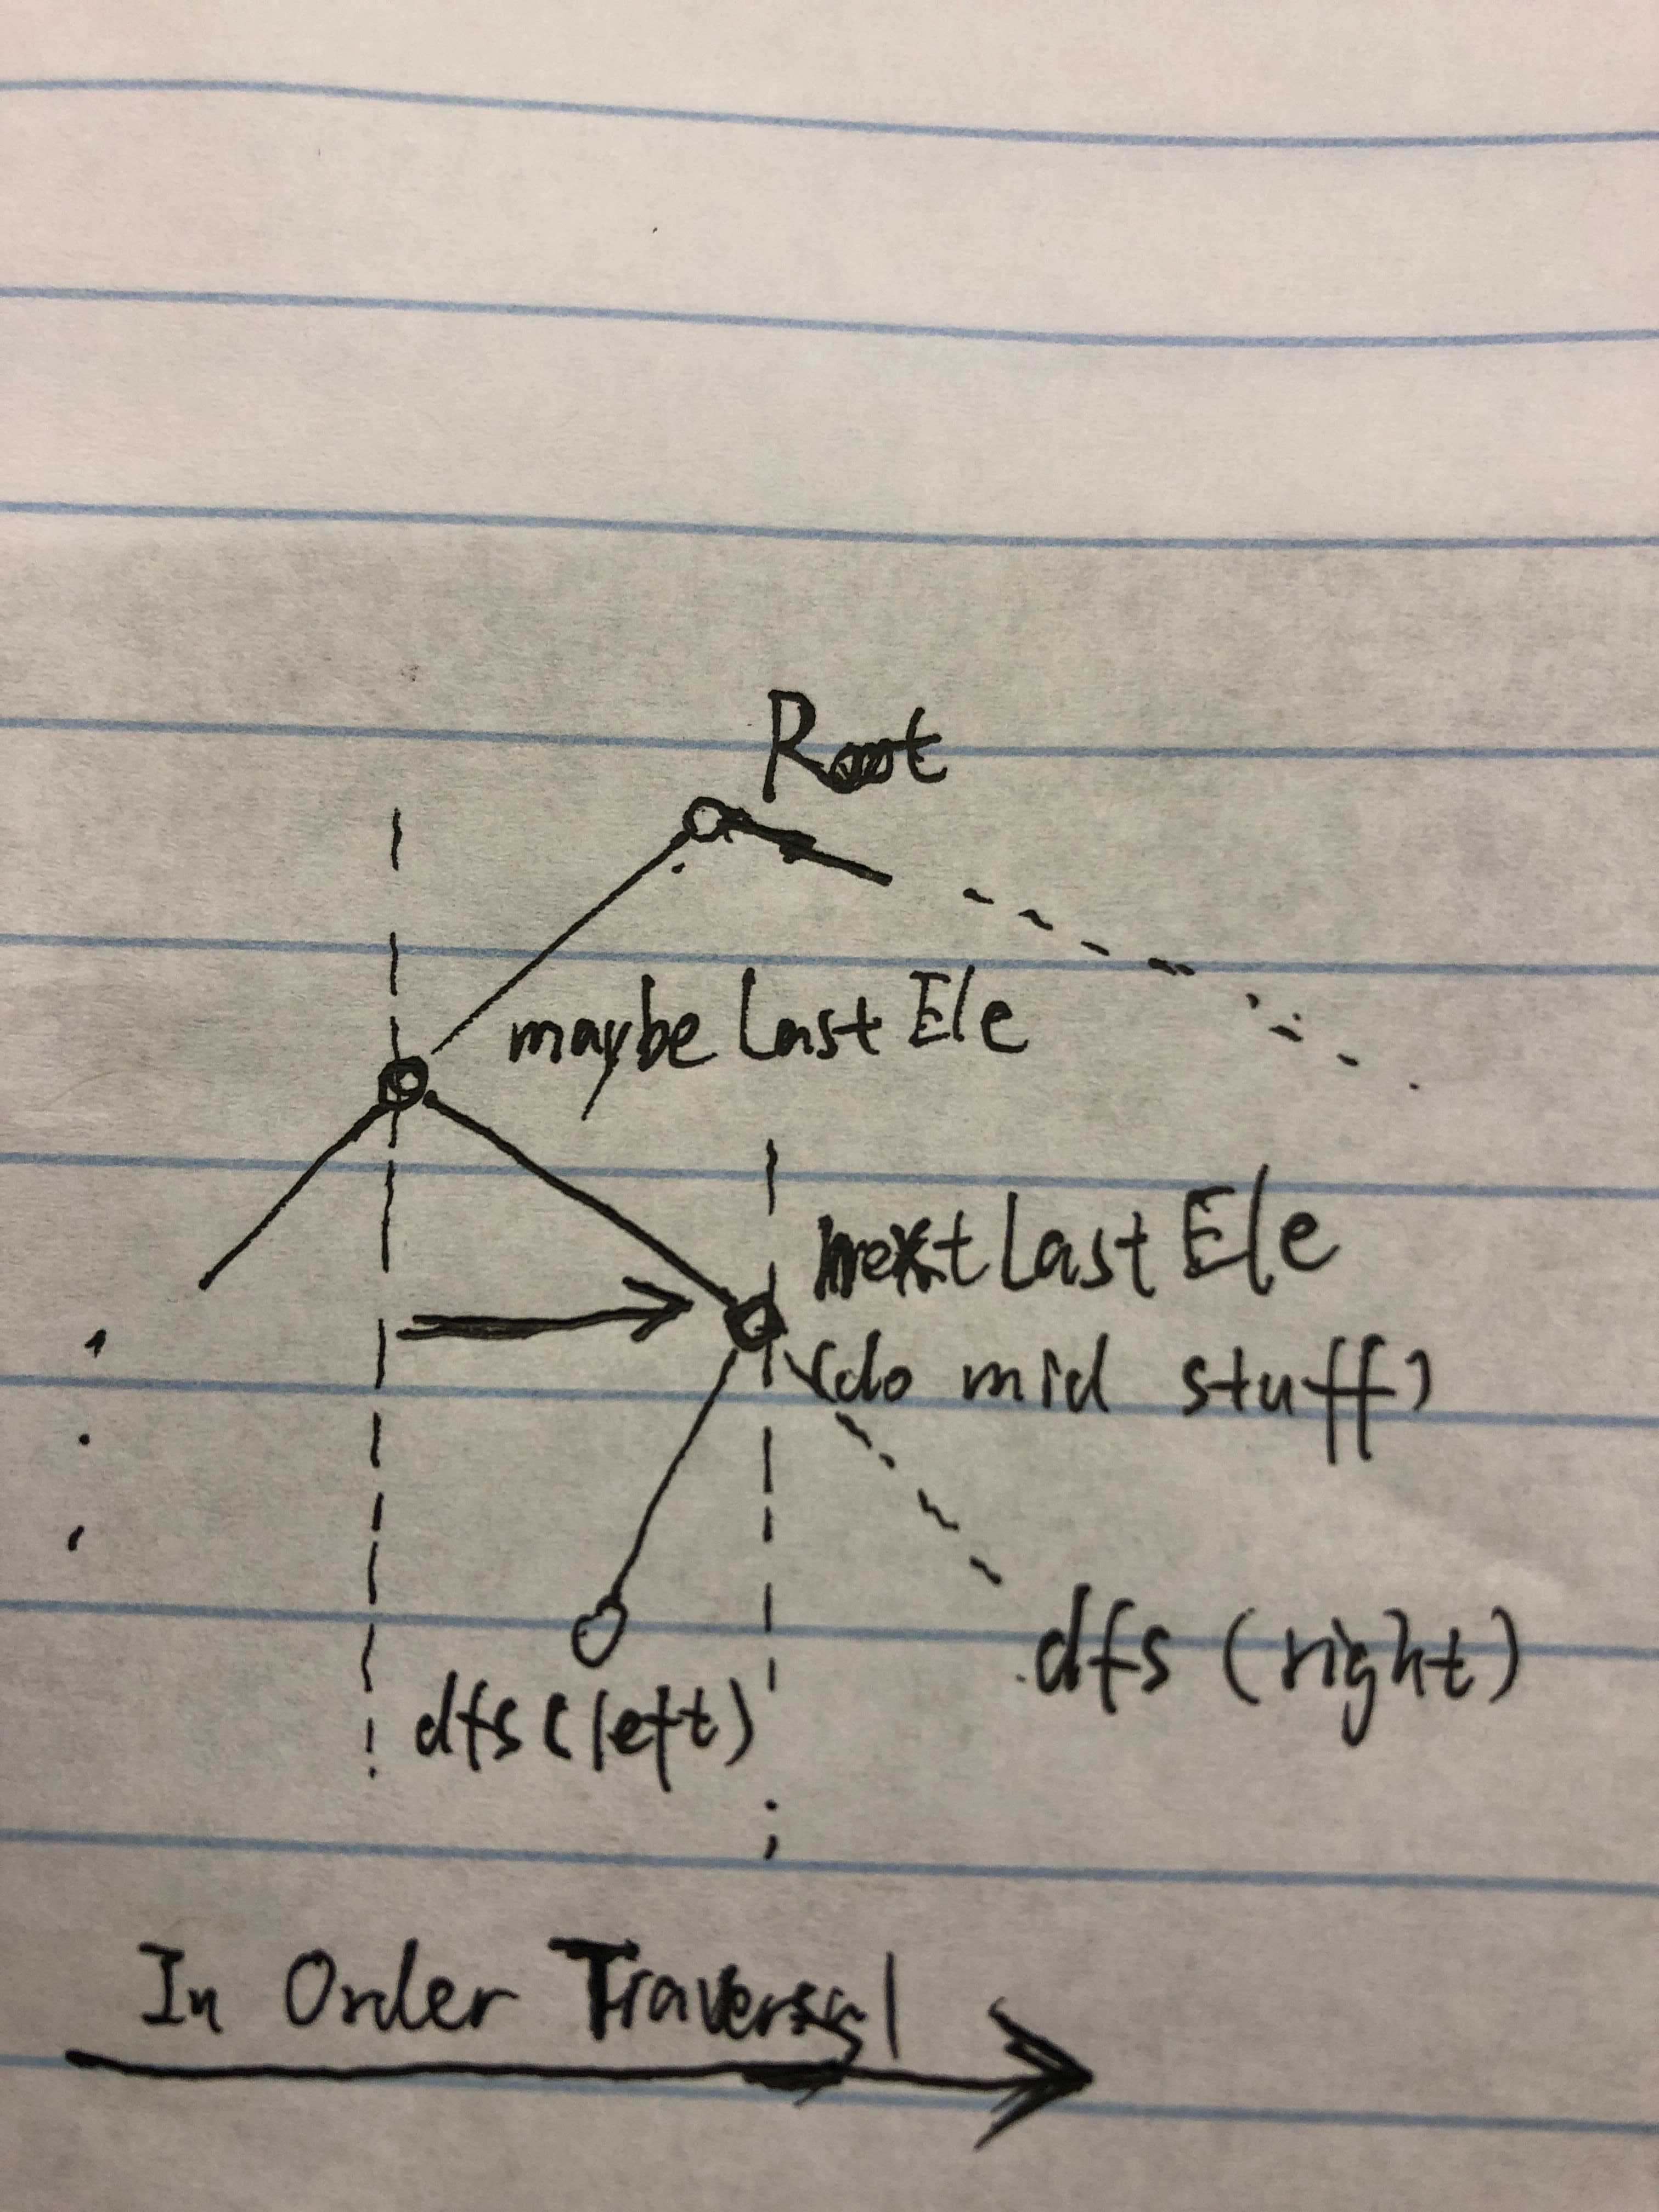 Root
maybe Last Ele
next Last Ele
(do mid stuff)
dfs (right)
dfs (left)
In Order Traversal